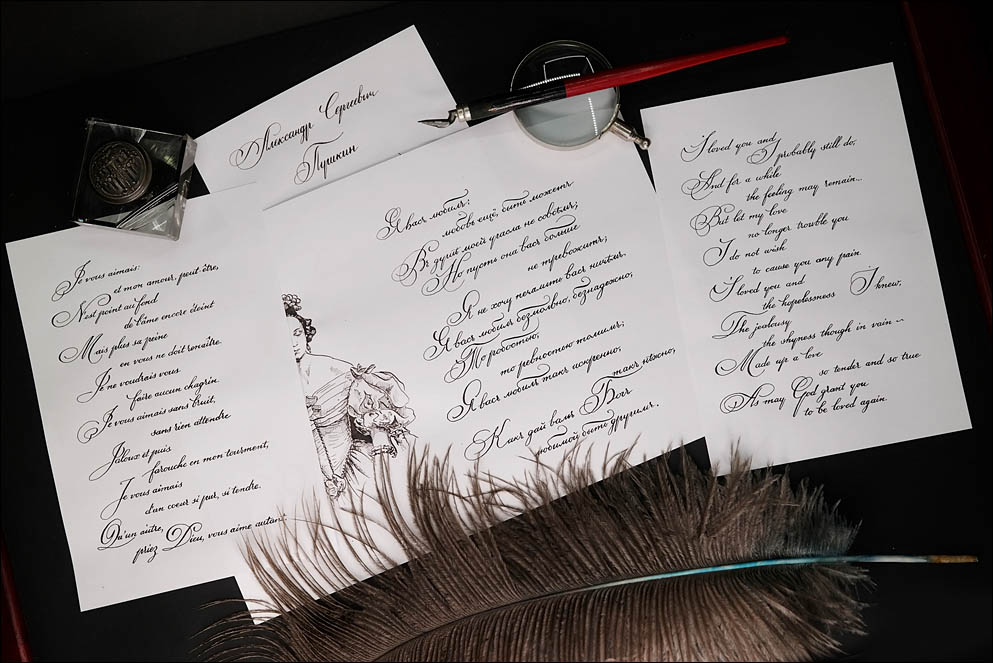 Александръ Сергеевичъ
Пушкин
Je vous aimais:
et mon amour, peut être,
N'est point au fond
de l'âme encore éteint
Mais plus sa peine
en vous ne doit renaître.
Je ne voudrais vous
faire aucun chagrin.
Je vous aimais sans bruit,
sans rien attendre
Jaloux et puis
farouche en mon tourment,
Je vous aimais
d'un coeur si pur, si tendre.
Qu'un autre,
priez Dieu, vous aime autant...
Я васъ любилъ:
любовь ещё, быть можетъ
Въ душѣ моей угасла не совсѣмъ;
Но пусть она васъ больше
не тревожитъ;
Я не хочу печалить васъ ничѣмъ.
Я васъ любилъ безмолвно, безнадежно,
То робостью,
то ревностью томимъ;
Я васъ любилъ такъ искренно,
такъ нѣжно,
Какъ дай вамъ Богъ
любимой быть другимъ.
I loved you and
I probably still do,
And for a while
the feeling may remain...
But let my love
no longer trouble you
I do not wish
to cause you any pain.
I loved you and
the hopelessness I knew,
The jealousy
the shyness though in vain ~
Made up a love
so tender and so true
As may God grant you
to be loved again.